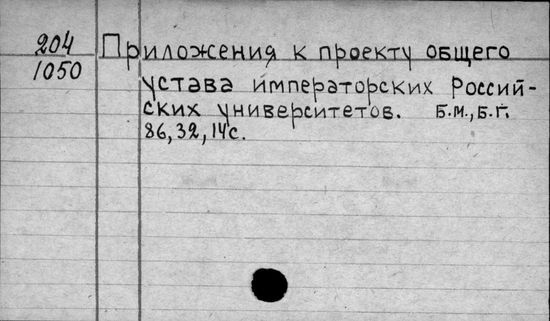 204
1050
Приложения к проекту общего
устава императорских Россий-
ских университетов. Б.М., Б.Г.
86, 32, 14 с.